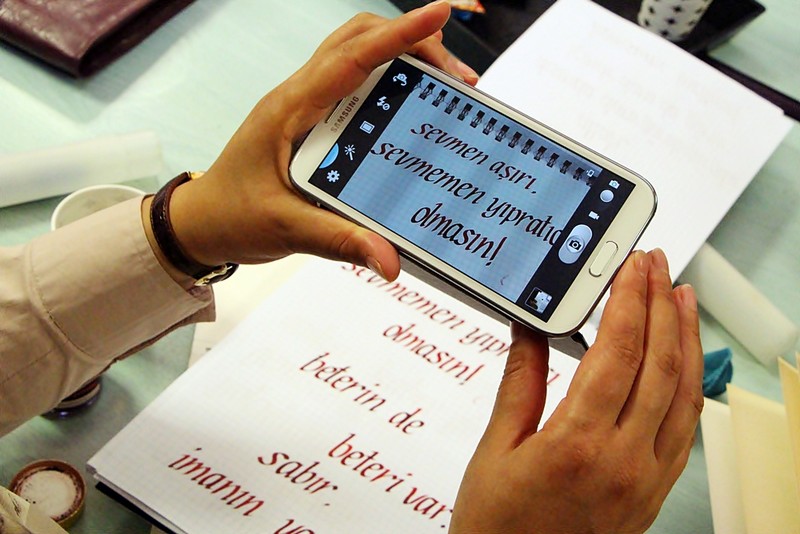 SAMSUNG
sevmen aşırı,
sevmemen yıpratıc
olmasın!
sevmemen
olmasın!
beterin de
beteri var.
sabır,
imanın